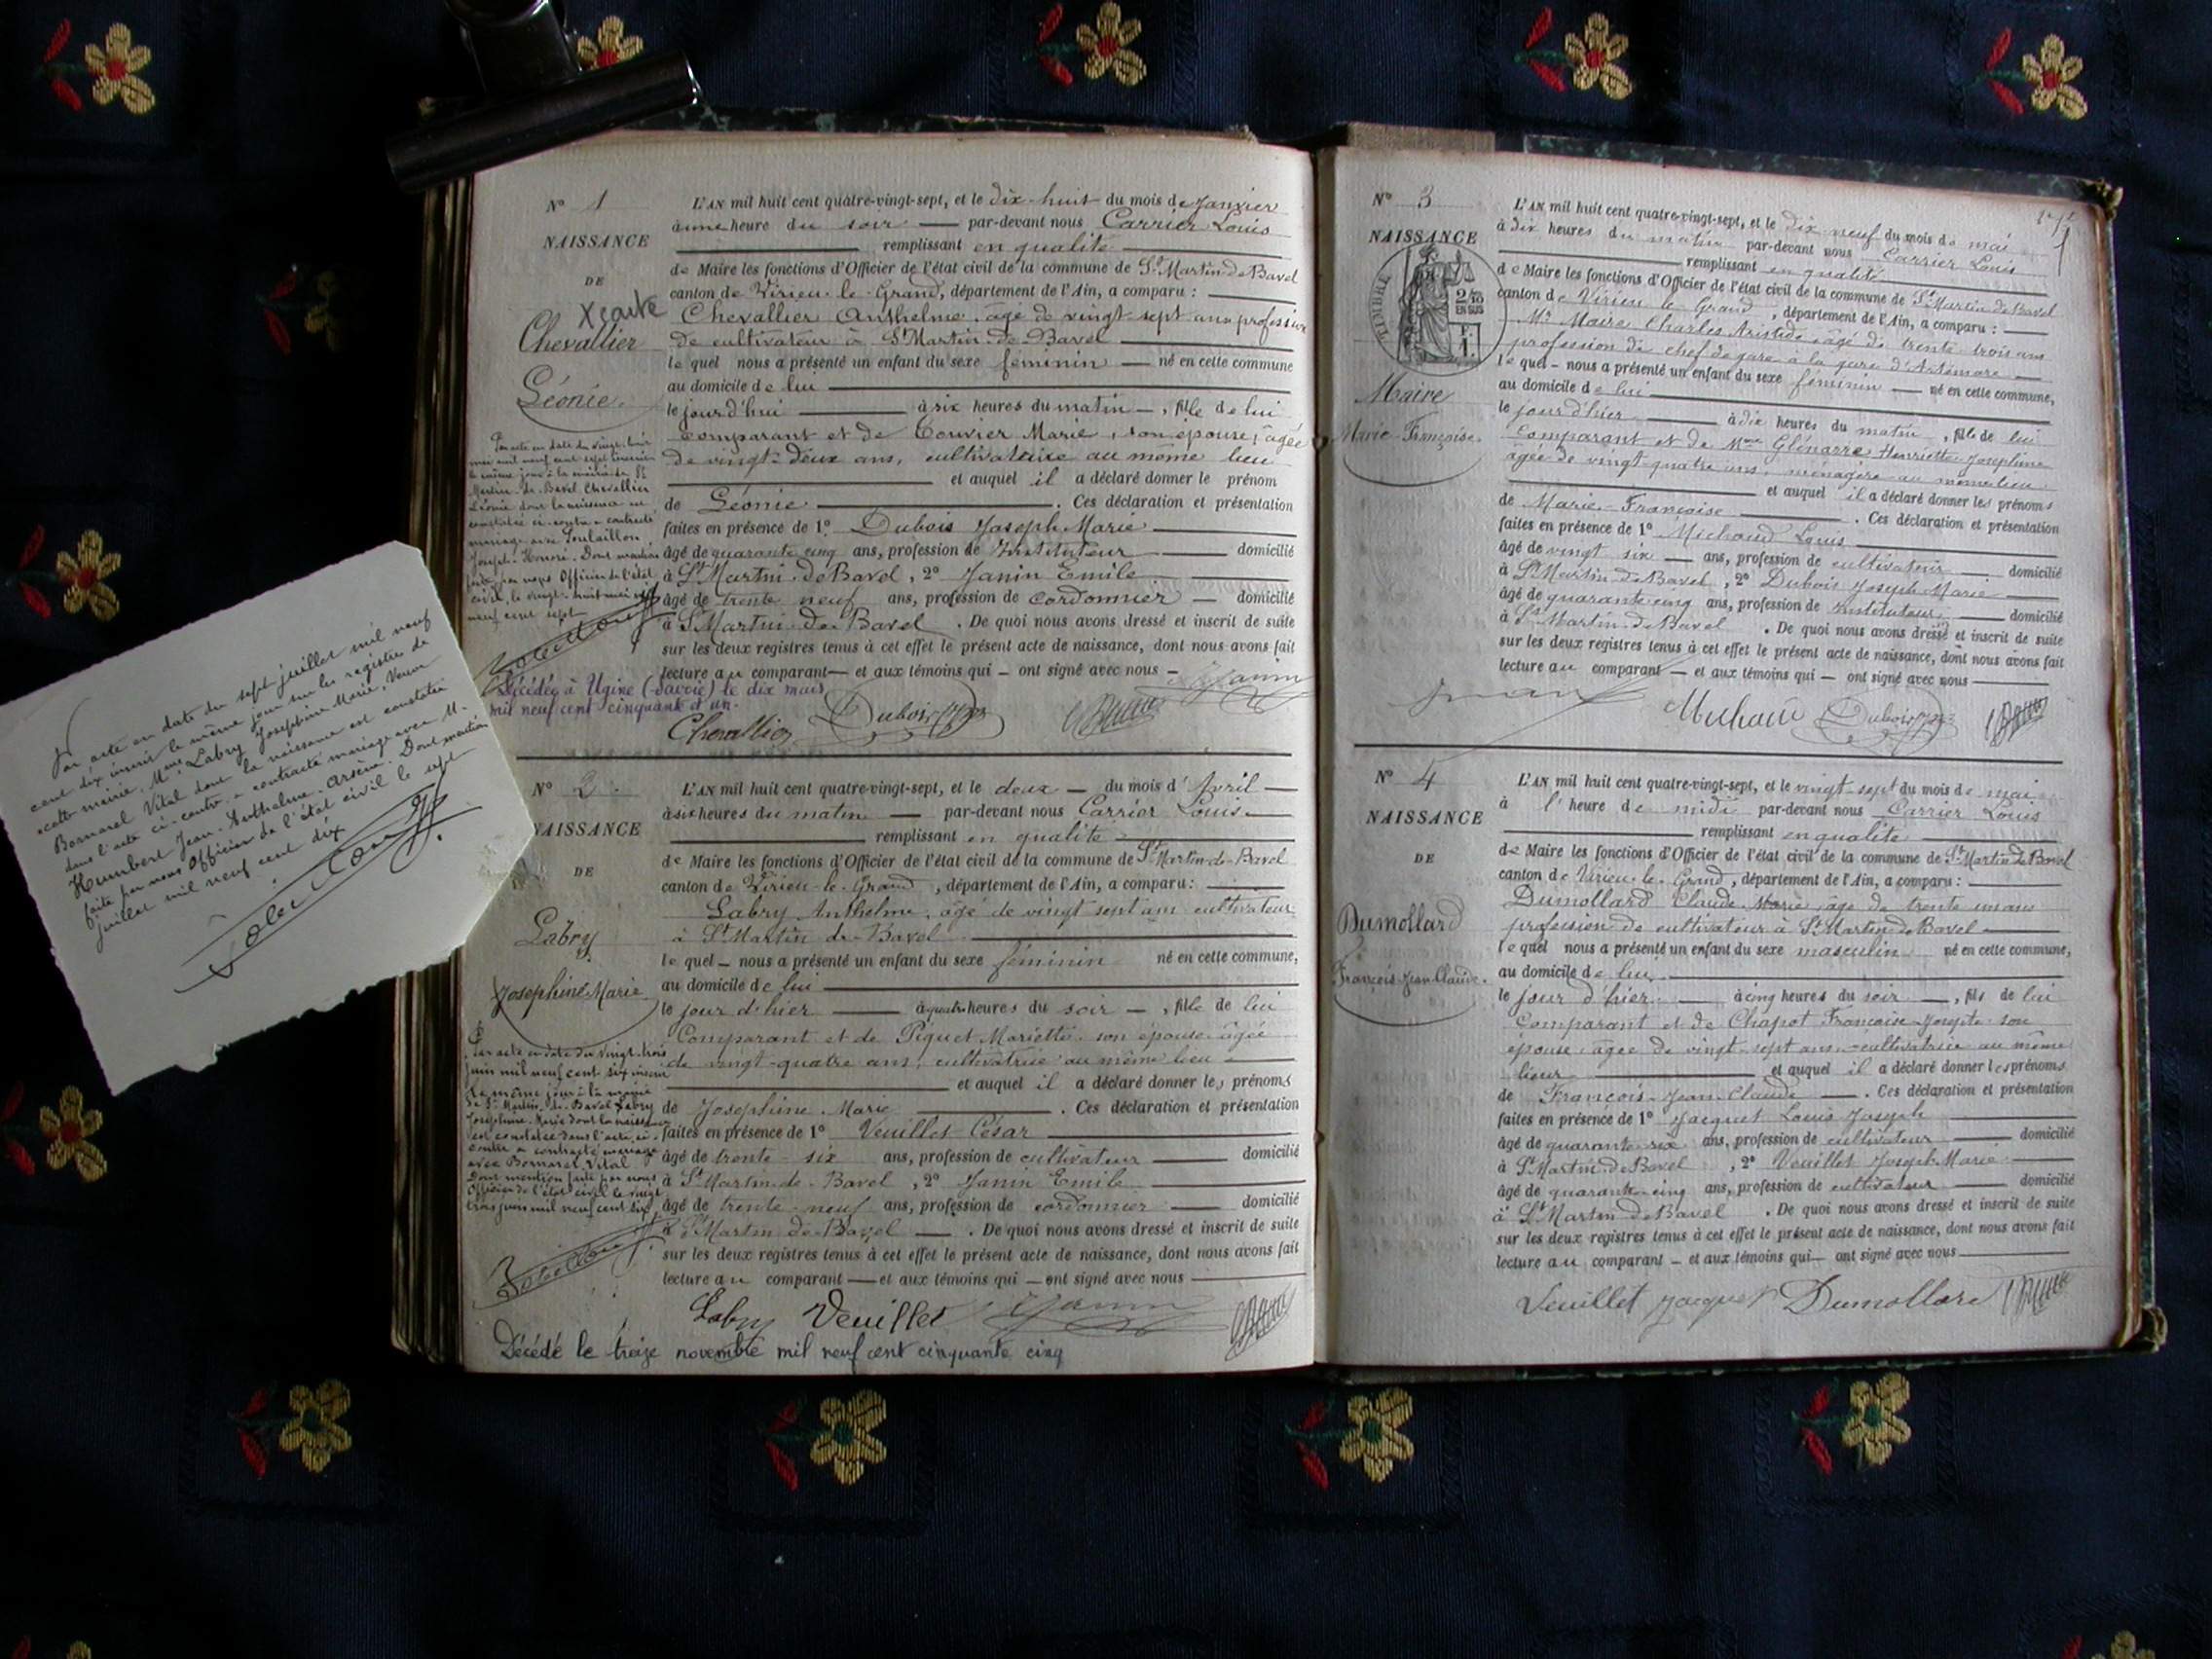 N° 1
NAISSANCE
DE
Chevallier
Léonie.
L'AN mil huit cent quatre-vingt-sept, et le dix-huit du mois de Janvier
à une heure du soir — par-devant nous Carrier Louis
remplissant en qualité
de Maire les fonctions d'Officier de l'état civil de la commune de St Martin-de-Bavel
canton de Virieu-le-Grand, département de l'Ain, a comparu :
Chevallier Anthelme, âgé de vingt-sept ans profession
de cultivateur à St Martin-de-Bavel
lequel nous a présenté un enfant du sexe féminin — né en cette commune
au domicile de lui
le jour d'hui — à six heures du matin —, fille de lui
comparant et de Couvrier Marie, son épouse, âgée
de vingt-deux ans, cultivatrice au même lieu
et auquel il a déclaré donner le prénom
de Léonie. Ces déclaration et présentation
faites en présence de 1° Dubois Joseph Marie
âgé de quarante cinq ans, profession de Instituteur — domicilié
à St Martin-de-Bavel, 2° Janin Emile
âgé de trente neuf ans, profession de cordonnier — domicilié
à St Martin-de-Bavel. De quoi nous avons dressé et inscrit de suite
sur les deux registres tenus à cet effet le présent acte de naissance, dont nous avons fait
lecture au comparant — et aux témoins qui — ont signé avec nous —
Janin
Chevallier Dubois
Par acte en date du vingt-huit
mai mil neuf cent sept inscrit
le même jour à la mairie de St
Martin-de-Bavel Chevallier
Léonie dont la naissance est
constatée ci-contre a contracté
mariage avec
Joseph-Honoré. Dont mention
faite par nous Officier de l'état
civil, le vingt-huit mai mil
neuf cent sept
Décédée à Ugine (Savoie) le dix mars
mil neuf cent cinquante et un.
Par acte en date du sept juillet mil neuf
cent dix inscrit le même jour sur les registres de
cette mairie, Mme Labry Joséphine Marie, Veuve
Bornarel Vital dont la naissance est constatée
dans l'acte ci-contre, a contracté mariage avec M.
Humbert Jean-Anthelme-Arsène. Dont mention
faite par nous Officier de l'état civil le sept
juillet mil neuf cent dix
N° 2
NAISSANCE
DE
Labry
Joséphine Marie
L'AN mil huit cent quatre-vingt-sept, et le deux — du mois d'Avril —
à six heures du matin — par-devant nous Carrier Louis
remplissant en qualité
de Maire les fonctions d'Officier de l'état civil de la commune de St Martin-de-Bavel
canton de Virieu-le-Grand, département de l'Ain, a comparu :
Labry Anthelme, âgé de vingt sept ans cultivateur
à St Martin-de-Bavel
lequel — nous a présenté un enfant du sexe féminin né en cette commune,
au domicile de lui
le jour d'hier — à quatre heures du soir —, fille de lui
Comparant et de Piquet Mariette son épouse âgée
de vingt-quatre ans, cultivatrice au même lieu
et auquel il a déclaré donner les prénoms
de Joséphine-Marie. Ces déclaration et présentation
faites en présence de 1° Veuillet César
âgé de trente-six ans, profession de cultivateur — domicilié
à St Martin-de-Bavel, 2° Janin Emile
âgé de trente-neuf ans, profession de cordonnier — domicilié
à St Martin-de-Bavel —. De quoi nous avons dressé et inscrit de suite
sur les deux registres tenus à cet effet le présent acte de naissance, dont nous avons fait
lecture au comparant — et aux témoins qui — ont signé avec nous
Labry Veuillet Janin
Par acte en date du vingt-trois
juin mil neuf cent six inscrit
le même jour à la mairie
de St Martin-de-Bavel Labry
Joséphine-Marie dont la naissance
est constatée dans l'acte ci-
contre a contracté mariage
avec Bornarel Vital
Dont mention faite par nous
Officier de l'état civil le vingt
trois juin mil neuf cent six
Décédé le treize novembre mil neuf cent cinquante cinq
N° 3
NAISSANCE
TIMBRE
2/10
EN SUS
F.
1.
Maire
Marie-Françoise.
L'AN mil huit cent quatre-vingt-sept, et le dix neuf du mois de mai
à dix heures du matin par-devant nous Carrier Louis
remplissant en qualité
de Maire les fonctions d'Officier de l'état civil de la commune de St Martin-de-Bavel
canton de Virieu-le-Grand, département de l'Ain, a comparu :
Mr Maire Charles Aristide, âgé de trente-trois ans
profession de chef de gare à la gare d'Artemare
lequel — nous a présenté un enfant du sexe féminin — né en cette commune,
au domicile de lui
le jour d'hier — à dix heures du matin, fille de lui
comparant et de Mme Glénarre Henriette-Joséphine
âgée de vingt-quatre ans, ménagère au même lieu.
et auquel il a déclaré donner les prénoms
de Marie-Françoise. Ces déclaration et présentation
faites en présence de 1° Michaud Louis
âgé de vingt six — ans, profession de cultivateur — domicilié
à St Martin-de-Bavel, 2° Dubois Joseph Marie
âgé de quarante-cinq ans, profession de Instituteur — domicilié
à St Martin-de-Bavel. De quoi nous avons dressé et inscrit de suite
sur les deux registres tenus à cet effet le présent acte de naissance, dont nous avons fait
lecture au comparant — et aux témoins qui — ont signé avec nous
Michaud Dubois
N° 4
NAISSANCE
DE
Dumollard
François-Jean-Claude.
L'AN mil huit cent quatre-vingt-sept, et le vingt-sept du mois de mai
à l'heure de midi par-devant nous Carrier Louis
remplissant en qualité
de Maire les fonctions d'Officier de l'état civil de la commune de St Martin-de-Bavel
canton de Virieu-le-Grand, département de l'Ain, a comparu :
Dumollard Claude-Marie, âgé de trente un ans
profession de cultivateur à St Martin-de-Bavel
lequel nous a présenté un enfant du sexe masculin né en cette commune,
au domicile de lui
le jour d'hier — à cinq heures du soir —, fils de lui
comparant et de Chapot Françoise-Josepte son
épouse, âgée de vingt-sept ans, cultivatrice au même
lieu — et auquel il a déclaré donner les prénoms
de François-Jean-Claude —. Ces déclaration et présentation
faites en présence de 1° Jacquet Louis Joseph
âgé de quarante-six ans, profession de cultivateur — domicilié
à St Martin-de-Bavel, 2° Veuillet Joseph-Marie
âgé de quarante-cinq ans, profession de cultivateur — domicilié
à St Martin-de-Bavel. De quoi nous avons dressé et inscrit de suite
sur les deux registres tenus à cet effet le présent acte de naissance, dont nous avons fait
lecture au comparant — et aux témoins qui — ont signé avec nous
Veuillet Jacquet Dumollard